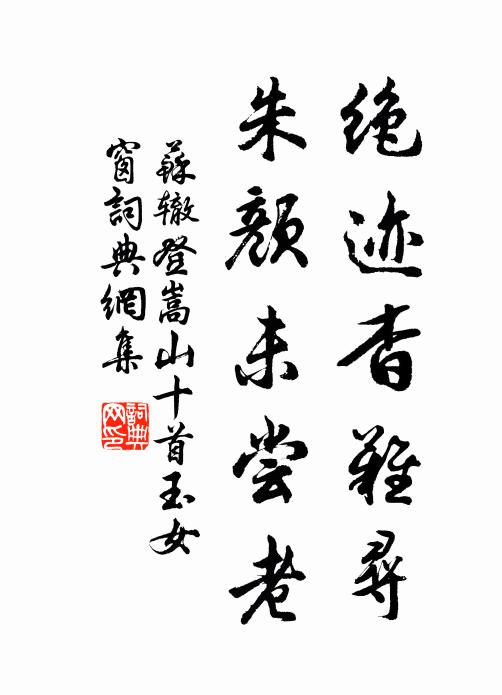 绝迹杳难寻
朱颜未尝老
蘇辙登嵩山十首玉女
窗詞典網集
詞典网印